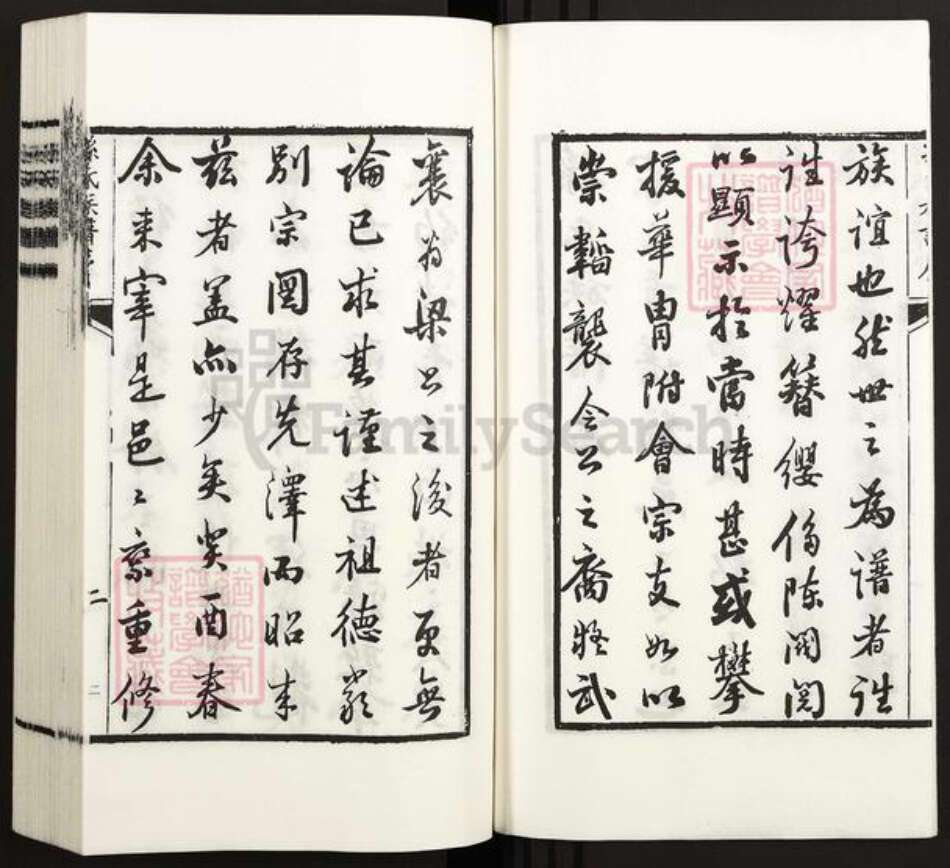 族誼也然世之為譜者往
往誇耀簪纓侈陳閥閱
以顯示於當時甚或攀
援華冑附會宗支如以
崇韜襲令公之裔將武
襄為梁公之後者更無
論已求其謹述祖德嚴
別宗圖存先澤而昭來
茲者蓋亦少矣癸酉春
余來宰是邑邑之重修
二
FamilySearch